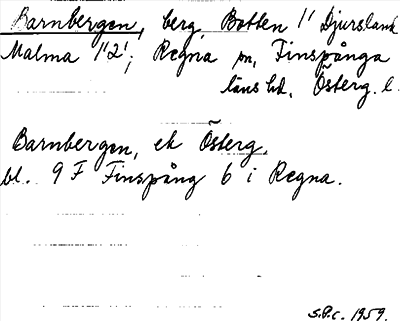 Barnbergen, berg, Botten 1' Djursland
Malma 1'2', Regna sn, Finspånga
läns hd, Österg. l.
Barnbergen, ek Österg.
bl. 9 F Finspång 6 i Regna.
S.P.c. 1959.